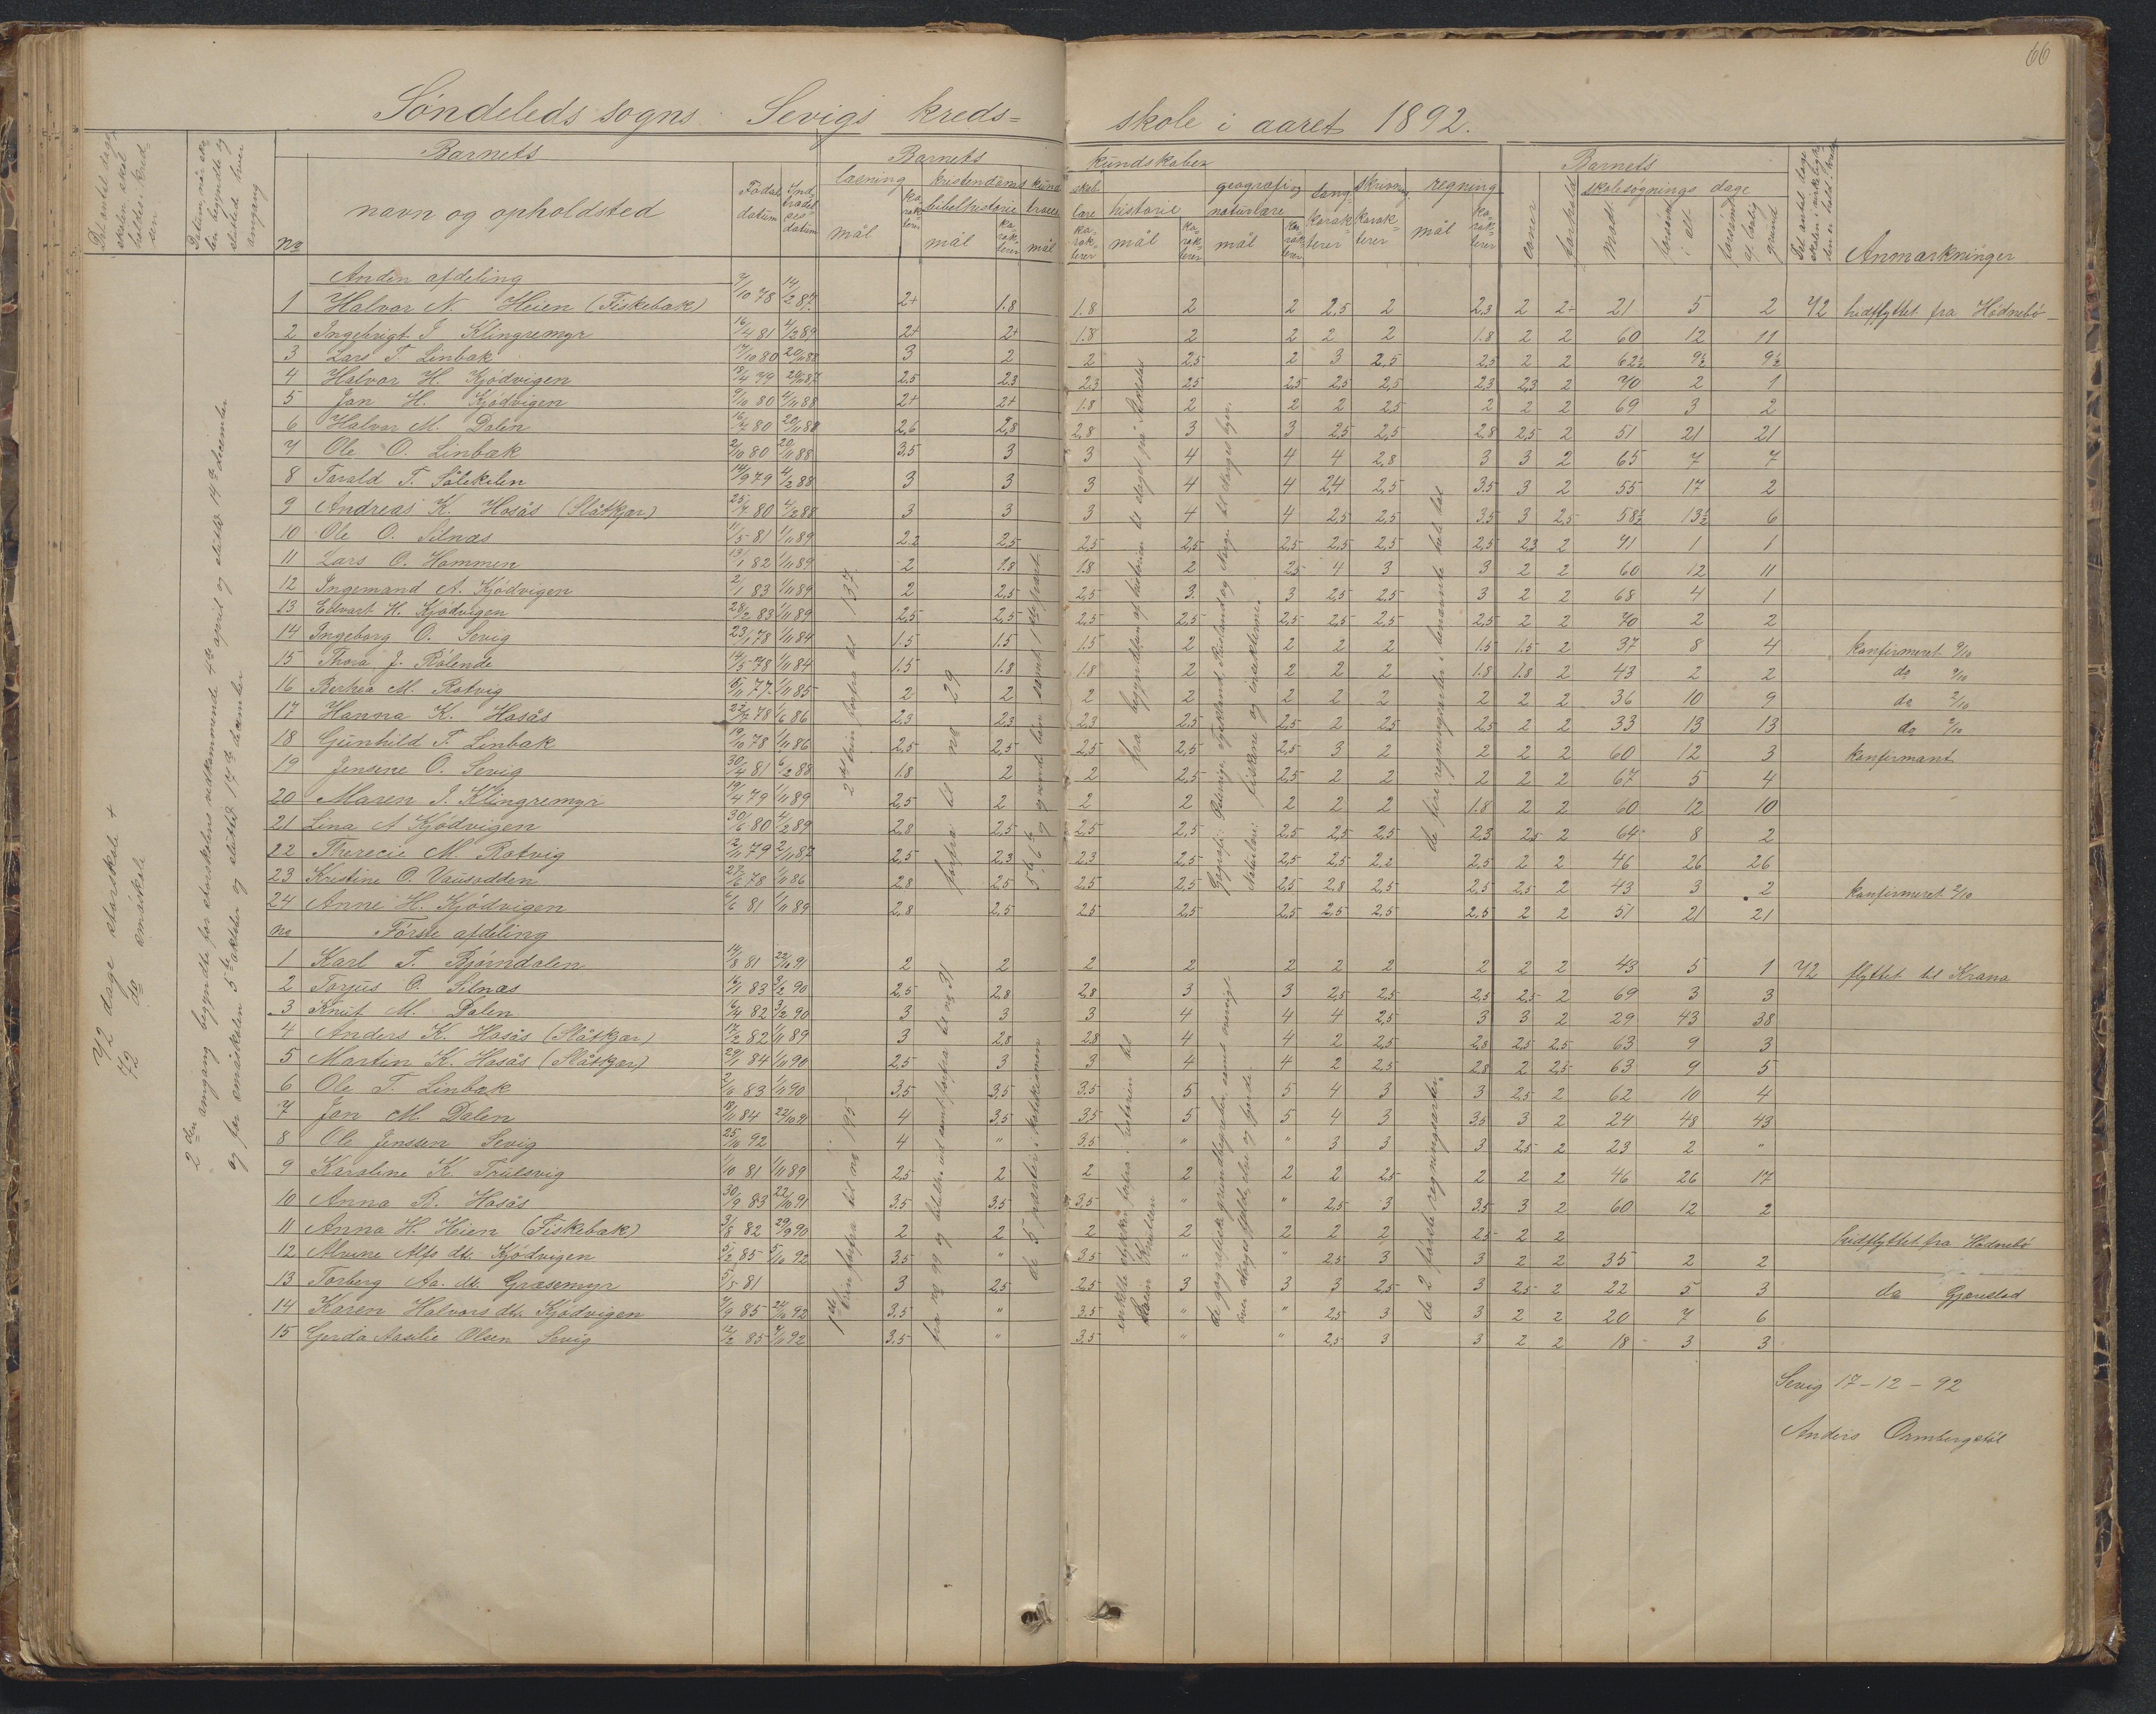 66
Søndeleds sogns Sevigs kreds= skole i aaret 1892.
Det antal dage skolen skal holdes i kredsen
Datum, når skolen begyndte og sluttede hver omgang
Barnets
no navn og opholdsted
Fødsels datum
Indtrædelses datum
Barnets kundskaber
læsning kristendomskundskab historie geografi og naturlære sang skrivning regning
mål karakterer
bibelhistorie troeslære
Barnets
evner forhold skolesøgnings dage
mødt forsømt i alt forsømt af lovlig grund
Det antal dage skolen i virkeligheden er holdt i kredsen
Anmærkninger
72 dage storskole +
72 do småskole
2den omgang begyndte for storskolens vedkommende 4de april og sluttet 14de december
og for småskolen 5te oktober og sluttet 17de december
Anden afdeling
1 Halvor N. Heien (Fiskebæk) 7/10 78 14/2 87. 2+ 1.8 1.8 2 2 2,5 2 2,3 2 2÷ 21 5 2 72 hidflyttet fra Hødnebø
2 Ingebrigt J Klingremyr 16/4 81 4/2 89 2+ 2+ 1.8 2 2 2 2 1.8 2 2 60 12 11
3 Lars T. Linbæk 17/10 80 20/11 88 3 2 2 2,5 2 3 2,5 2,5 2 2 62½ 9½ 9½
4 Halvor H. Kjødvigen 18/4 79 20/11 87 2,5 2,3 2,3 2,5 2,5 2,5 2,5 2,3 2,3 2 70 2 1
5 Jon H. Kjødvigen 9/10 80 4/11 88 2+ 2+ 1.8 2 2 2 2,5 2 2 2 69 3 2
6 Halvor M. Dalen 16/7 80 20/11 88 2,6 2,8 2,8 3 3 2,5 2,5 2,8 2,5 2 51 21 21
7 Ole O. Linbæk 2/10 80 20/11 88 3,5 3 3 4 4 4 2,8 3 3 2 65 7 7
8 Tarald T. Sølekilen 14/9 79 4/2 88 3 3 3 4 4 2,4 2,5 3,5 3 2 55 17 2
9 Andreas K. Hosås (Slåtkjær) 25/7 80 4/2 88 3 3 3 4 4 2,5 2,5 3,5 3 2,5 58½ 13½ 6
10 Ole O. Silnæs 11/5 81 1/11 89 2,2 2,5 2,5 2,5 2,5 2,5 2,5 2,5 2,3 2 71 1 1
11 Lars O. Hammen 13/1 82 1/11 89 2 1.8 1.8 2 2,5 4 3 3 2 2 60 12 11
12 Ingemand A. Kjødvigen 2/1 83 1/11 89 2 2,5 2,5 3 3 2,5 2,5 3 2 2 68 4 1
13 Edvart H. Kjødvigen 28/2 83 1/11 89 2,5 2,5 2,5 2,5 2,5 2,5 2,5 2,5 2 2 70 2 2
14 Ingeborg O. Sevig 23/1 78 1/11 84 1.5 1.5 1.5 2 2 2 2 1.5 1.5 2 37 8 4 konfirmeret 2/10
15 Thora J. Rølende 14/5 78 1/11 84 1.5 1.8 1.8 2 2 2 2 1.8 1.8 2 43 2 2 do 2/10
16 Berthea M. Rotvig 5/11 77 1/11 85 2 2 2 2 2 2 2 2 2 2 36 10 9 do 2/10
17 Hanna K. Hosås 22/7 78 1/6 86 2,3 2,3 2,3 2,5 2,5 2 2,5 2,5 2 2 33 13 13 do 2/10
18 Gunhild T. Linbæk 19/10 78 1/11 86 2,5 2,5 2,5 2,5 2,5 3 2 2 2 2 60 12 3 konfirmant
19 Jensine O. Sevig 30/4 81 6/2 88 1.8 2 2 2,5 2,5 2 2 2 2 2 67 5 4
20 Maren J. Klingremyr 19/4 79 1/11 89 2,5 2 2 2 2 2 2 1.8 2 2 60 12 10
21 Lina A Kjødvigen 30/6 80 4/2 89 2,8 2,5 2,5 2,5 2,5 2,5 2,5 2,3 2,5 2 64 8 2
22 Therecie M. Rotvig 12/11 79 2/11 87 2,5 2,3 2,3 2,5 2,5 2,5 2,2 2,5 2 2 46 26 26
23 Kristine O. Vausodden 27/6 78 1/11 86 2,8 2,5 2,5 2,5 2,5 2,8 2,5 2,5 2,5 2 43 3 2 konfirmeret 2/10
24 Anne H. Kjødvigen 6/6 81 1/11 89 2,8 2,5 2,5 2,5 2,5 2,5 2,5 2,5 2 2 51 21 21
2det trin forfra til 137.
forfra til no 29
5te, 6te og vende bøn samt 1ste part.
fra begyndelsen af historien til dagel på
Geografi: Østerrige, Tyskland, Rusland og Norge til Norges byer.
Naturlære: fiskene og insekterne.
de fire regningsarter i benævnte hele tal
no Første afdeling
1 Karl T. Bjørndalen 14/8 81 22/10 91 2 2 2 2 2 2 2 2 2 2 43 5 1 72 flyttet til Kranа
2 Torjus O. Silnæs 16/1 83 3/2 90 2,5 2,8 2,8 3 3 2,5 2,5 2,5 2,5 2 69 3 3
3 Knut M. Dalen 16/4 82 3/2 90 3 3 3 4 4 4 2,5 3 3 2 29 43 38
4 Anders K. Hosås (Slåtkjær) 17/2 82 1/11 89 3 2,8 2,8 4 4 2 2,5 2,8 2,5 2,5 63 9 3
5 Martin K. Hosås (Slåtkjær) 29/1 84 1/11 90 2,5 3 3 4 4 2 2,5 2,8 2 2,5 63 9 5
6 Ole T. Linbæk 2/11 83 1/11 90 3,5 3,5 3,5 5 5 4 3 3 2,5 2 62 10 4
7 Jon M. Dalen 18/11 84 22/10 91 4 3,5 3,5 5 5 4 3 3,5 3 2 24 48 43
8 Ole Jenssen Sevig 25/10 92 4 " 3,5 " " 3 3 3 2,5 2 23 2 "
9 Karoline K. Trulsvig 1/10 81 1/11 89 2,5 2 2 2 2 2 2,5 2 2 2 46 26 17
10 Anna B. Hosås 30/9 83 22/10 91 3,5 3,5 3,5 " " 2,5 3 3,5 3 2 60 12 2
11 Anna H. Heien (Fiskebæk) 3/8 82 29/9 90 2 2 2 2 2 2 2 2,5 2 2 hidflyttet fra Hødnebø
12 Alvine Alfs dtr. Kjødvigen 5/2 85 5/10 92 3,5 " 3,5 " " 2,5 3 3 2 2 35 2 2
13 Torberg Aa. dtr. Græsemyr 5/5 81 3 2,5 2,5 3 3 3 2,5 3 2,5 2 22 5 3 do Gjerestad
14 Karen Halvors dtr. Kjødvigen 7/9 85 24/10 92 3,5 " 3,5 " " 2,5 3 3 2 2 20 7 6
15 Gerda Aasilie Olsen Sevig 12/2 85 7/11 92 3,5 " 3,5 " " 2,5 3 3 2 2 18 3 3
1ste trin forfra til no 195
fra no 99 og bibelhi. ud samt forfra til no 31
de 5 parter i katekismen
enkelte stykker forfra i historien til
Karin Knutsen
de geografiske grundbegreber samt oversigt
over Norges fjelde, elve og fjorde.
de 2 første regningsarter.
Sevig 17-12-92
Anders Ormbergstøl